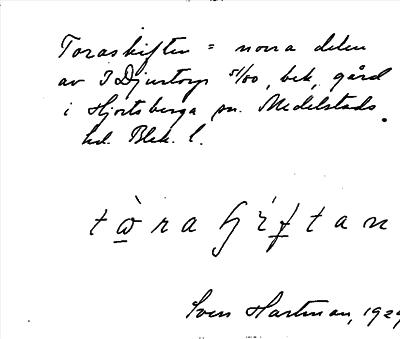 Toraskiften = norra delen
av 3 Djurtorp 5/00, bek. gård
i Hjortsberga sn. Medelstads
hd. Blek. l.
Sven Hartman, 1929